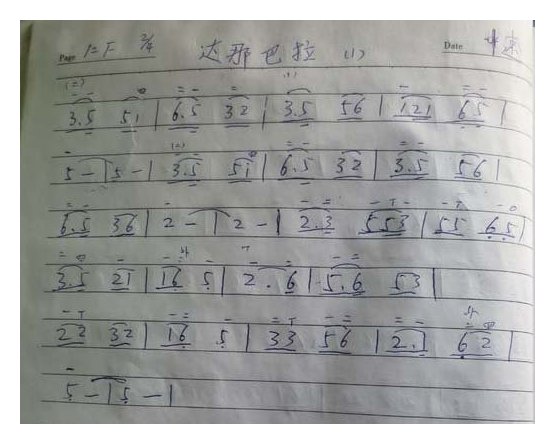 Page 1=F 2/4 达那巴拉 (1) Date 中速
3.5 51 | 6.5 32 | 3.5 56 | 121 65 |
5 - | 5 - | 3.5 51 | 6.5 32 | 3.5 56 |
6.5 36 | 2 - | 2 - | 2.3 553 | 55 65 |
3.5 21 | 16 5 | 2. 6 | 5.6 53 |
22 32 | 16 5 | 33 56 | 2.1 62 |
5 - | 5 - |